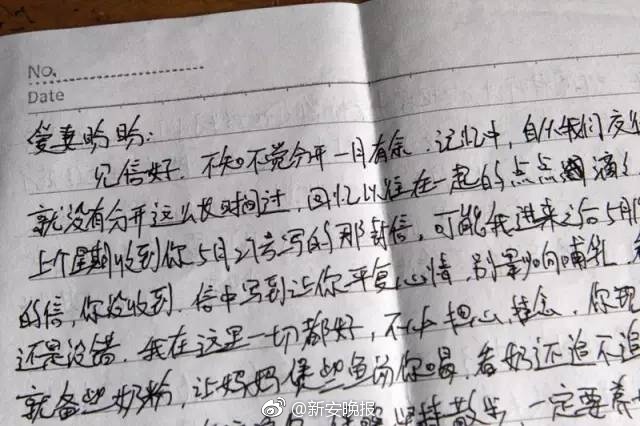 No.
Date
爱妻盼盼:
见信好。不知不觉分开一月有余。记忆中,自从我们交往
就没有分开这么长时间过,回忆以往在一起的点点滴滴
上个星期收到你5月27号写的那封信,可能我进来之后5月
的信,你没收到。信中写到让你平复心情,别影响哺乳。
还是没错。我在这里一切都好,不必担心挂念。你现
就备些奶粉,让妈妈煲些鱼汤你喝,看奶还追不追
坚持散步,一定要养
@新安晚报